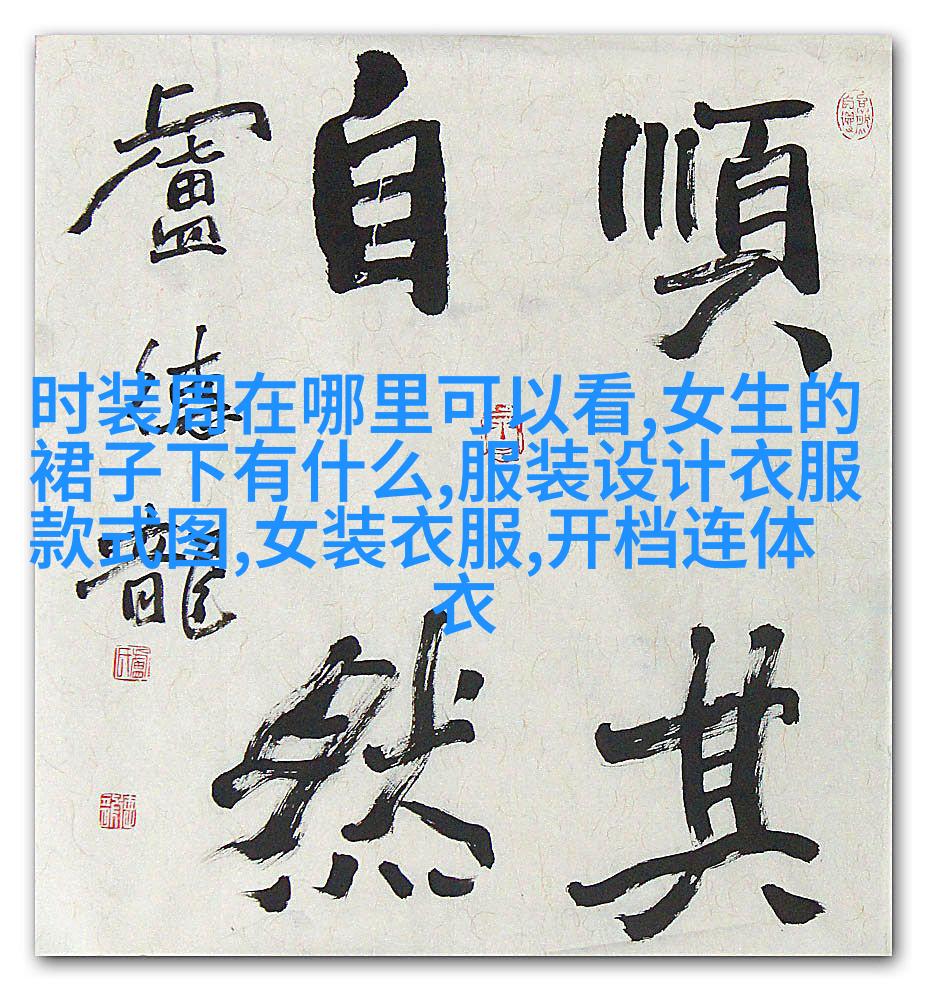 順其
自然
盧德龍
时装周在哪里可以看,女生的
裙子下有什么,服装设计衣服
款式图,女装衣服,开档连体
衣